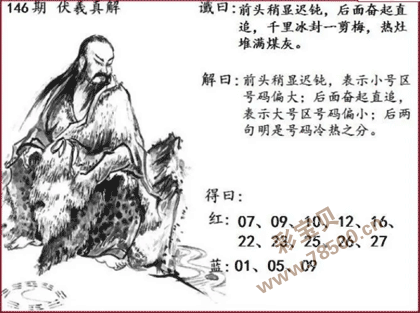 146期 伏羲真解
谶曰：前头稍显迟钝，后面奋起直
追，千里冰封一剪梅，热灶
堆满煤灰。
解曰：前头稍显迟钝，表示小号区
号码偏大；后面奋起直追，
表示大号区号码偏小；后两
句明是号码冷热之分。
得曰：
红：07、09、10、12、16、
22、23、25、26、27
蓝：01、05、09
彩宝贝
www.78500.cn